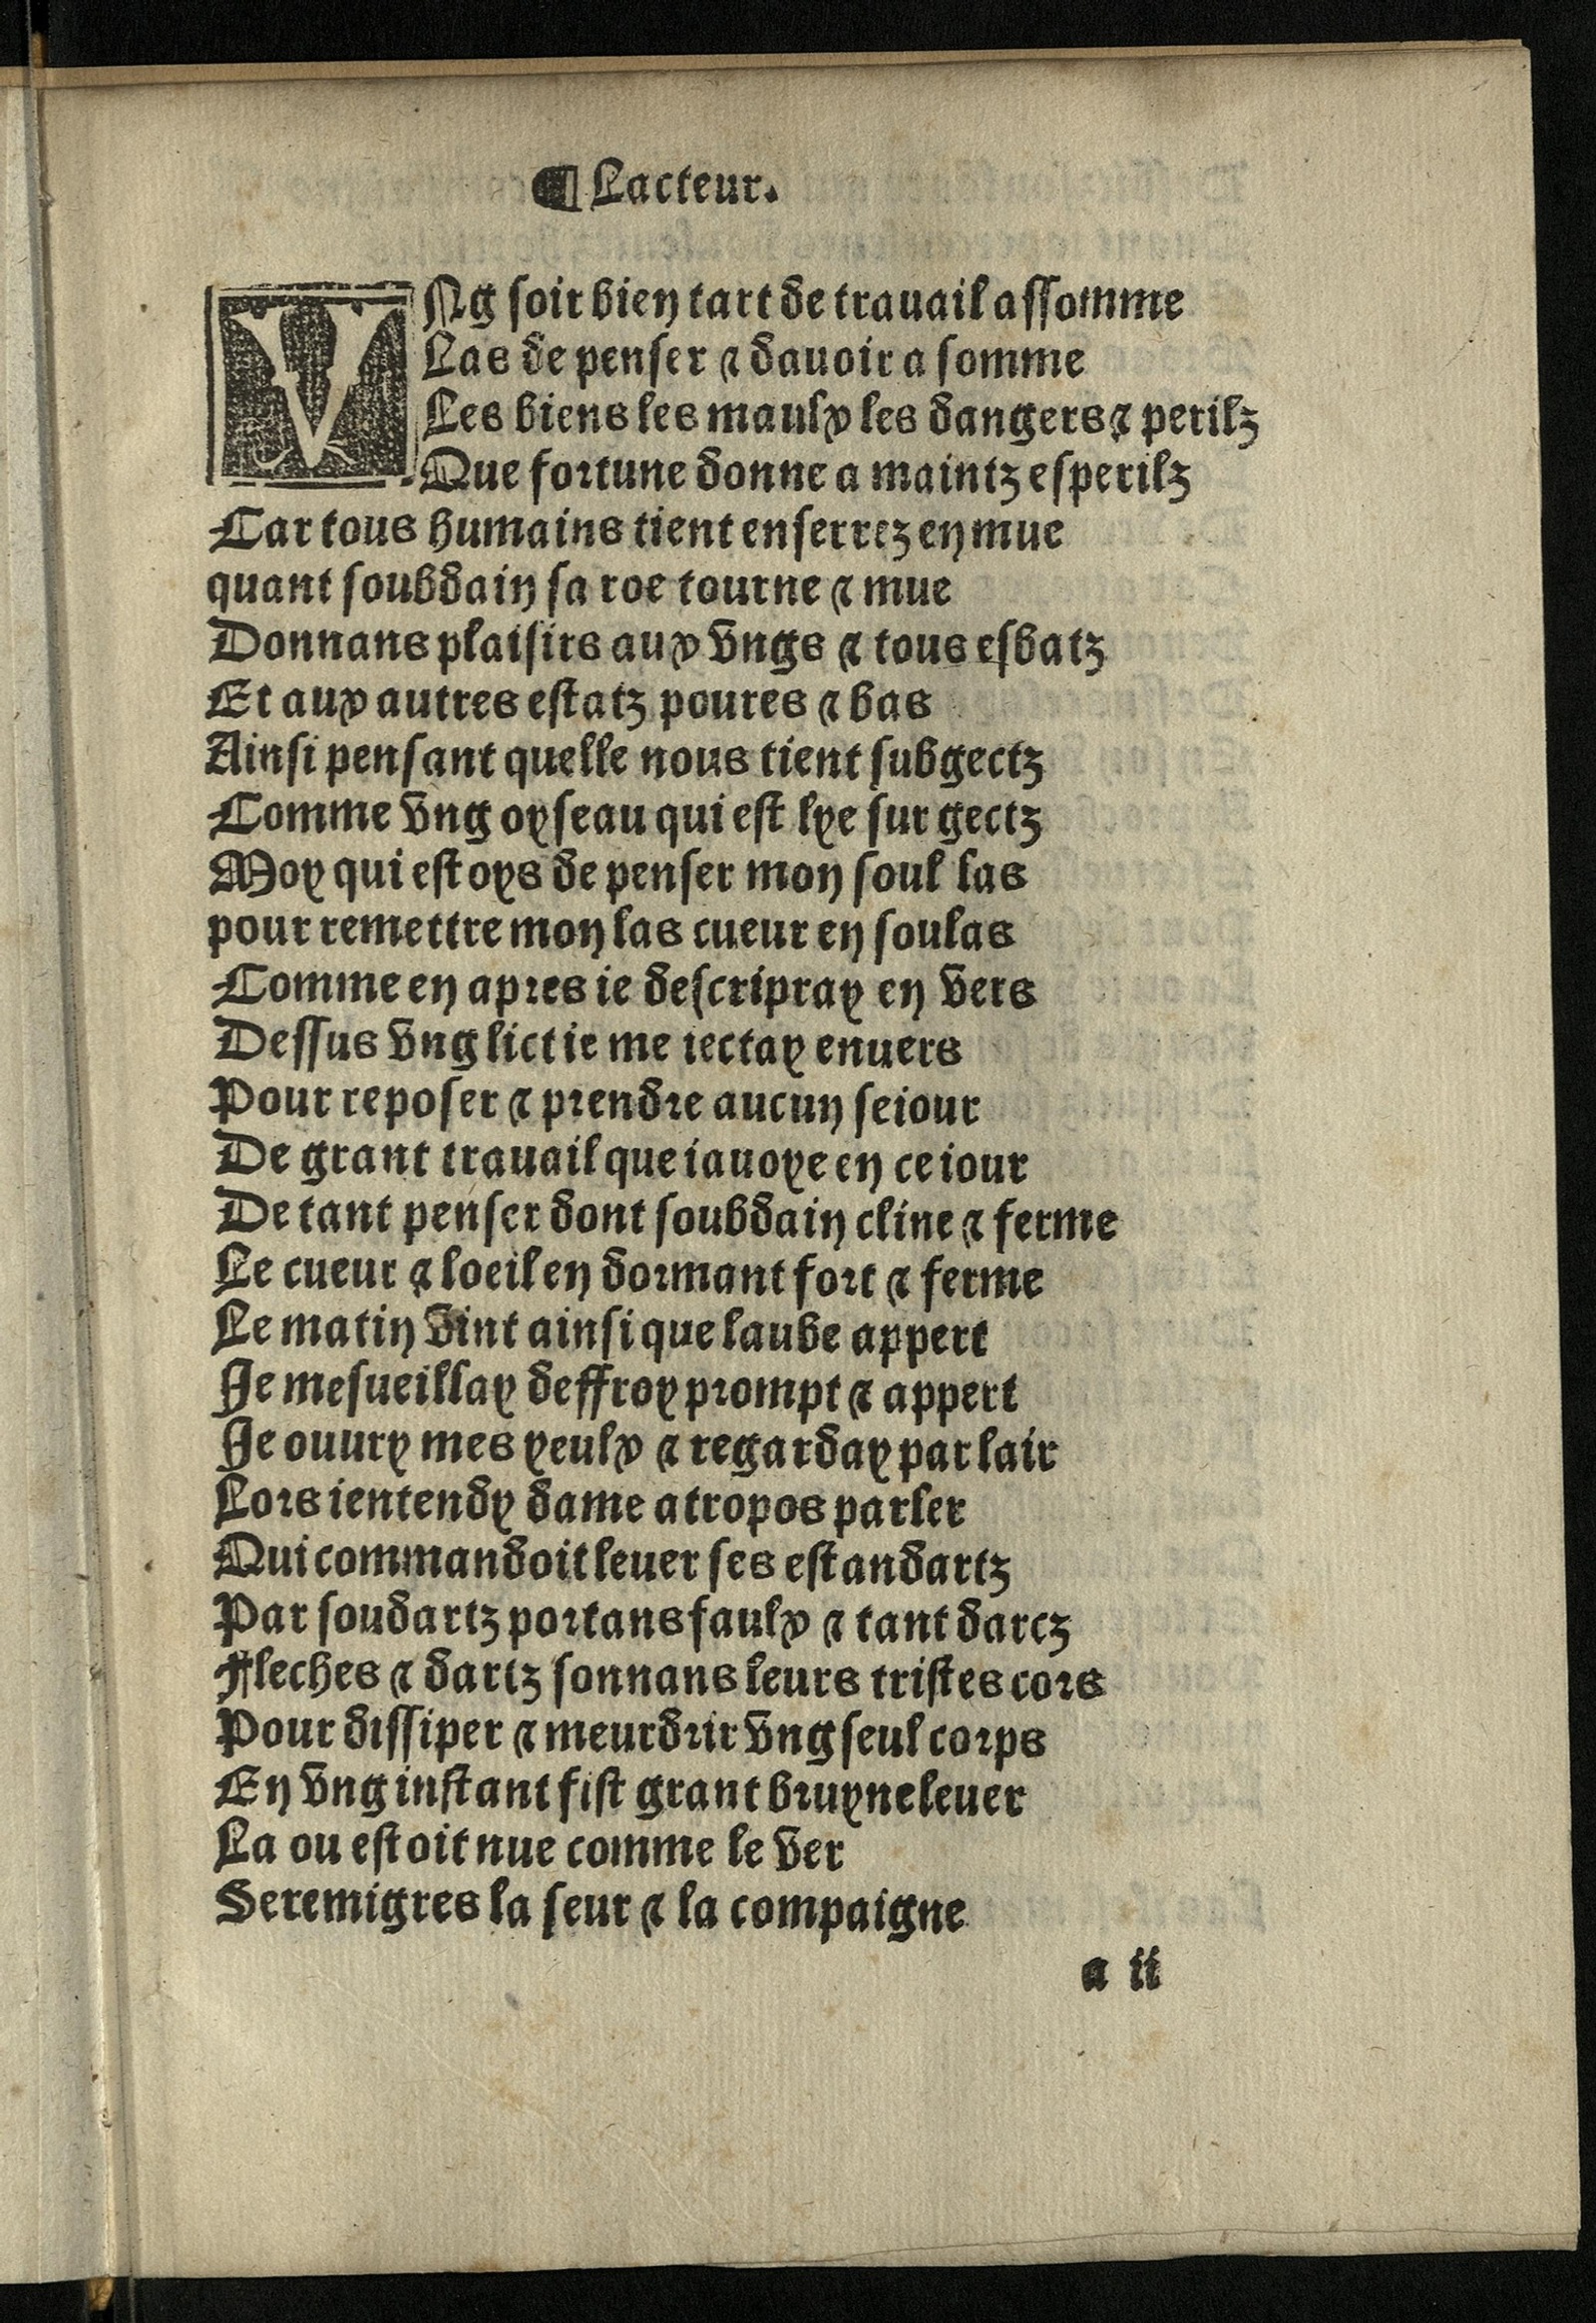 ¶ Lacteur.
VNg soir bien tart de trauail assomme
Las de penser ⁊ dauoir a somme
Les biens les maulx les dangers ⁊ perilz
Que fortune donne a maintz esperilz
Car tous humains tient enserrez en mue
quant soubdain sa roe tourne ⁊ mue
Donnans plaisirs aux vngs ⁊ tous esbatz
Et aux autres estatz poures ⁊ bas
Ainsi pensant quelle nous tient subgectz
Comme vng oyseau qui est lye sur gectz
Moy qui estoys de penser mon soul las
pour remettre mon las cueur en soulas
Comme en apres ie descripray en vers
Dessus vng lict ie me iectay enuers
Pour reposer ⁊ prendre aucun seiour
De grant trauail que iauoye en ce iour
De tant penser dont soubdain cline ⁊ ferme
Le cueur ⁊ loeil en dormant fort ⁊ ferme
Le matin vint ainsi que laube appert
Je mesueillay deffroy prompt ⁊ appert
Je ouury mes yeulx ⁊ regarday par lair
Lors ientendy dame atropos parler
Qui commandoit leuer ses estandartz
Par soudartz portans faulx ⁊ tant darcz
Fleches ⁊ dartz sonnans leurs tristes cors
Pour dissiper ⁊ meurdrir vng seul corps
En vng instant fist grant bruyne leuer
La ou estoit nue comme le ver
Seremigres la seur ⁊ la compaigne
a ii